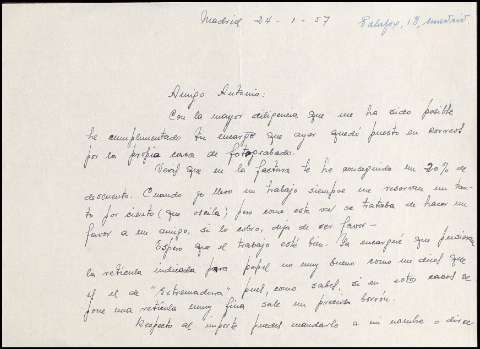 Madrid 24-1-57
Palafox, 18,
Amigo Antonio:
Con la mayor diligencia que me ha sido posible
he cumplimentado tu encargo que ayer quedó puesto en correos
por la propia casa de fotograbado.
Verás que en la factura te he conseguido un 20% de
descuento. Cuando yo llevo un trabajo siempre me reservan un tan-
to por ciento (que oscila) pero como esta vez se trataba de hacer un
favor a un amigo, si lo cobro, deja de ser favor -
Espero que el trabajo esté bien. Ya encargué que pusieran
la retícula indicada para papel no muy bueno como me dices que
es el de "Extremadura" pues, como sabes, si en estos casos se
pone una retícula muy fina sale un precioso borrón.
Respecto al importe puedes mandarlo a mi nombre o direc-